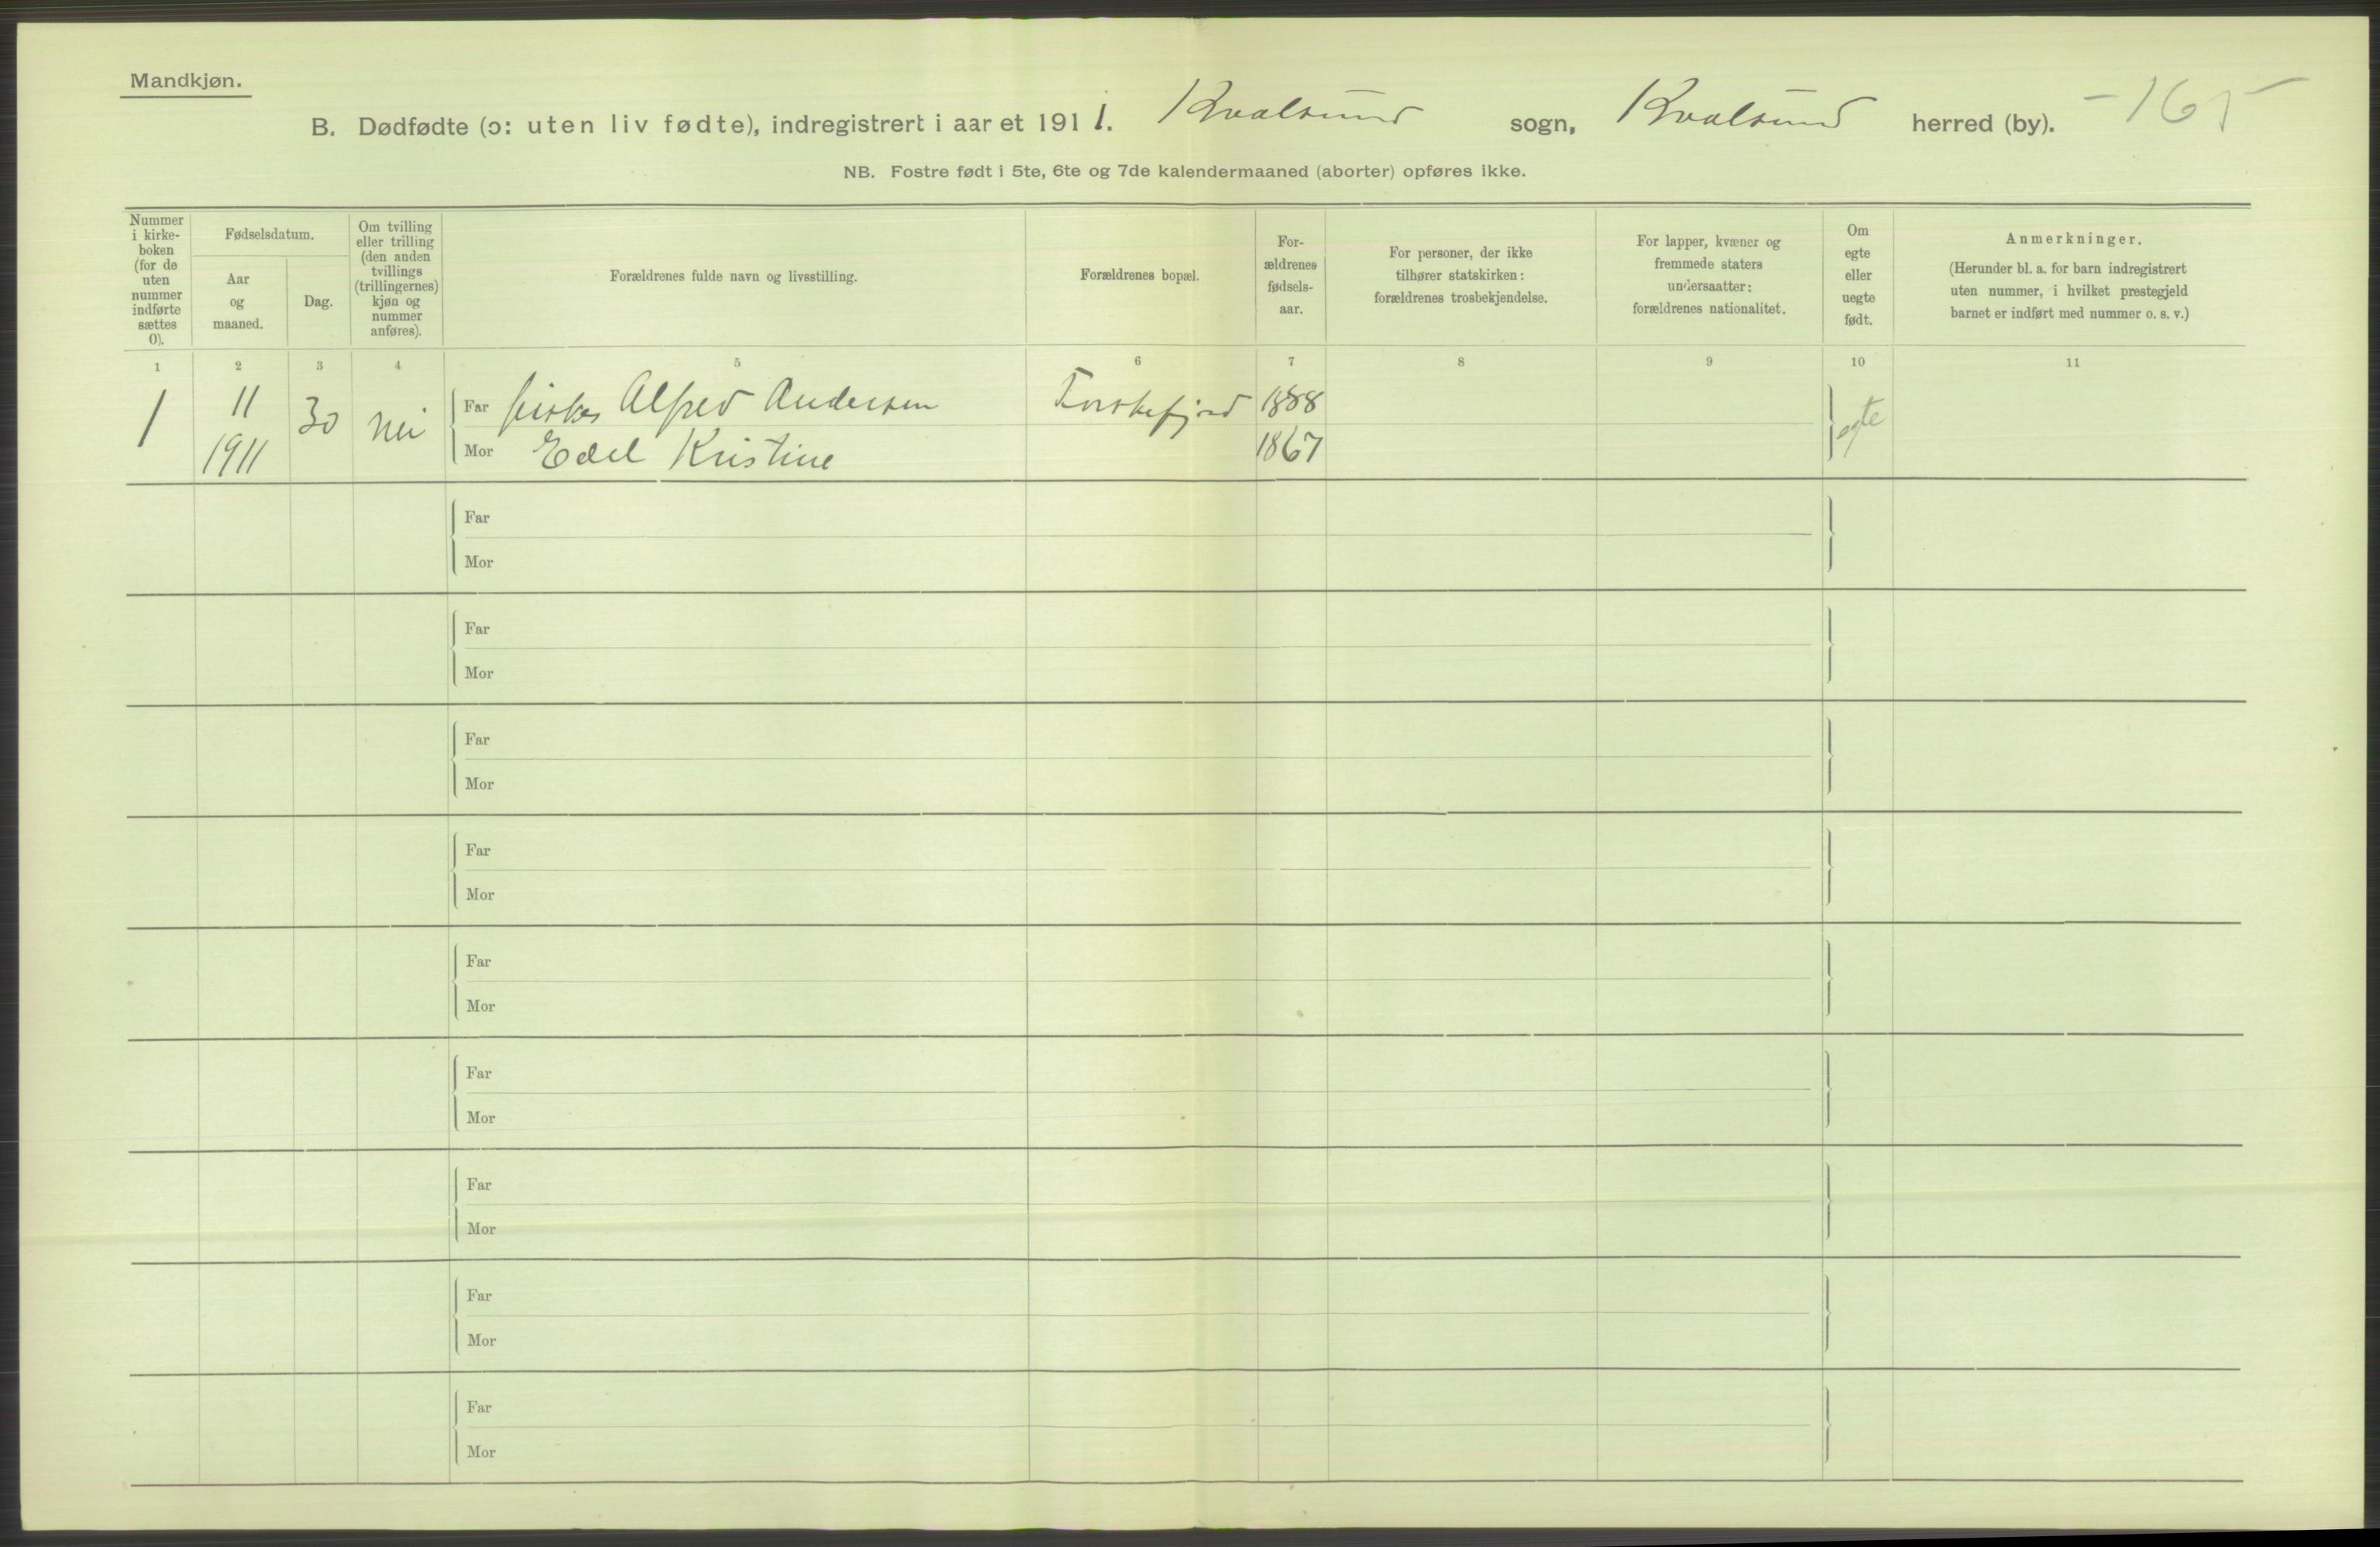 Mandkjøn.
B. Dødfødte (ɔ: uten liv fødte), indregistrert i aaret 1911. Kvalsund sogn, Kvalsund herred (by). - 165
NB. Fostre født i 5te, 6te og 7de kalendermaaned (aborter) opføres ikke.
Nummer
i kirke-
boken
(for de
uten
nummer
indførte
sættes
0).
Fødselsdatum.
Aar
og
maaned.
Dag.
Om tvilling
eller trilling
(den anden
tvillings
(trillingernes)
kjøn og
nummer
anføres).
Forældrenes fulde navn og livsstilling.
Forældrenes bopæl.
For-
ældrenes
fødsels-
aar.
For personer, der ikke
tilhører statskirken:
forældrenes trosbekjendelse.
For lapper, kvæner og
fremmede staters
undersaatter:
forældrenes nationalitet.
Om
egte
eller
uegte
født.
Anmerkninger.
(Herunder bl. a. for barn indregistrert
uten nummer, i hvilket prestegjeld
barnet er indført med nummer o. s. v.)
1 2 3 4 5 6 7 8 9 10 11
1 11 1911 30 nei
Far fisker Alfred Andersen Torskefjord 1888
Mor Edel Kristine 1867
egte
Far
Mor
Far
Mor
Far
Mor
Far
Mor
Far
Mor
Far
Mor
Far
Mor
Far
Mor
Far
Mor